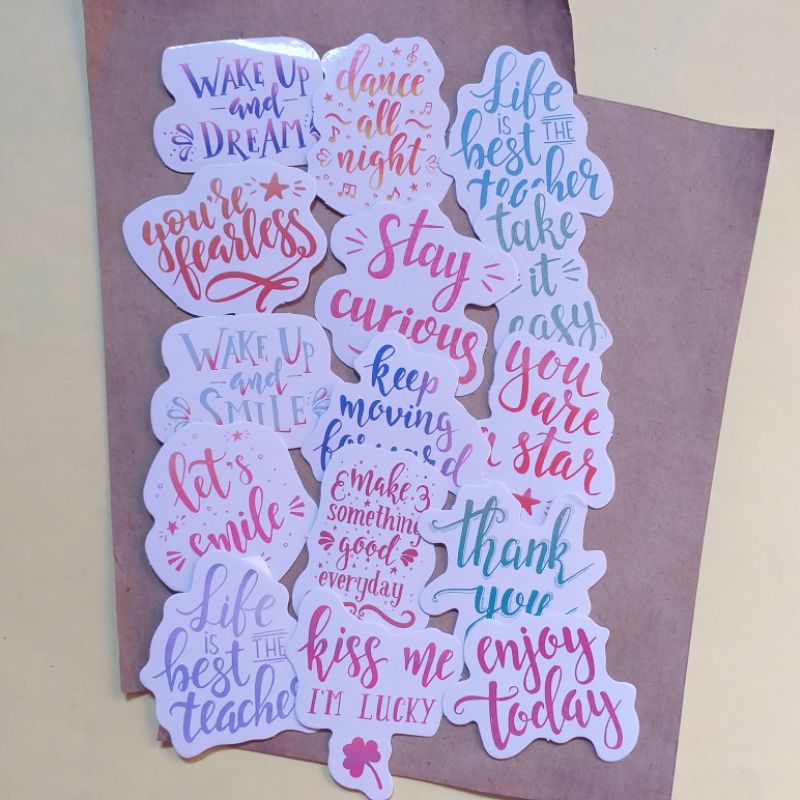 WAKE UP
and
DREAM
dance
all
night
Life
IS THE
best
teacher
you're
fearless
Stay
curious
take
it
easy
WAKE UP
and
SMILE
keep
moving
forward
you
are
a star
let's
smile
make
something
good
everyday
thank
you
Life
IS THE
best
teacher
kiss me
I'M LUCKY
enjoy
today